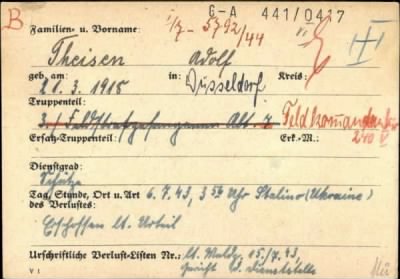 B G-A 441/0417
Familien- u. Vorname: I/7- 5792/44
Theisen Adolf
geb. am: in: Kreis:
21.3.1915 Düsseldorf
Truppenteil:
3./ Feldstrafgefangenen Abt. 7 Feldkommandantur
Ersatz-Truppenteil: Erk.-M.: 240 V
Dienstgrad:
Schütze
Tag, Stunde, Ort u. Art 6.7.43, 3 Uhr Stalino (Ukraine)
des Verlustes:
Erschossen lt. Urteil
Urschriftliche Verlust-Listen Nr.: lt. Meldg. 15./7.43,
V 1 Gericht d. Dienststelle